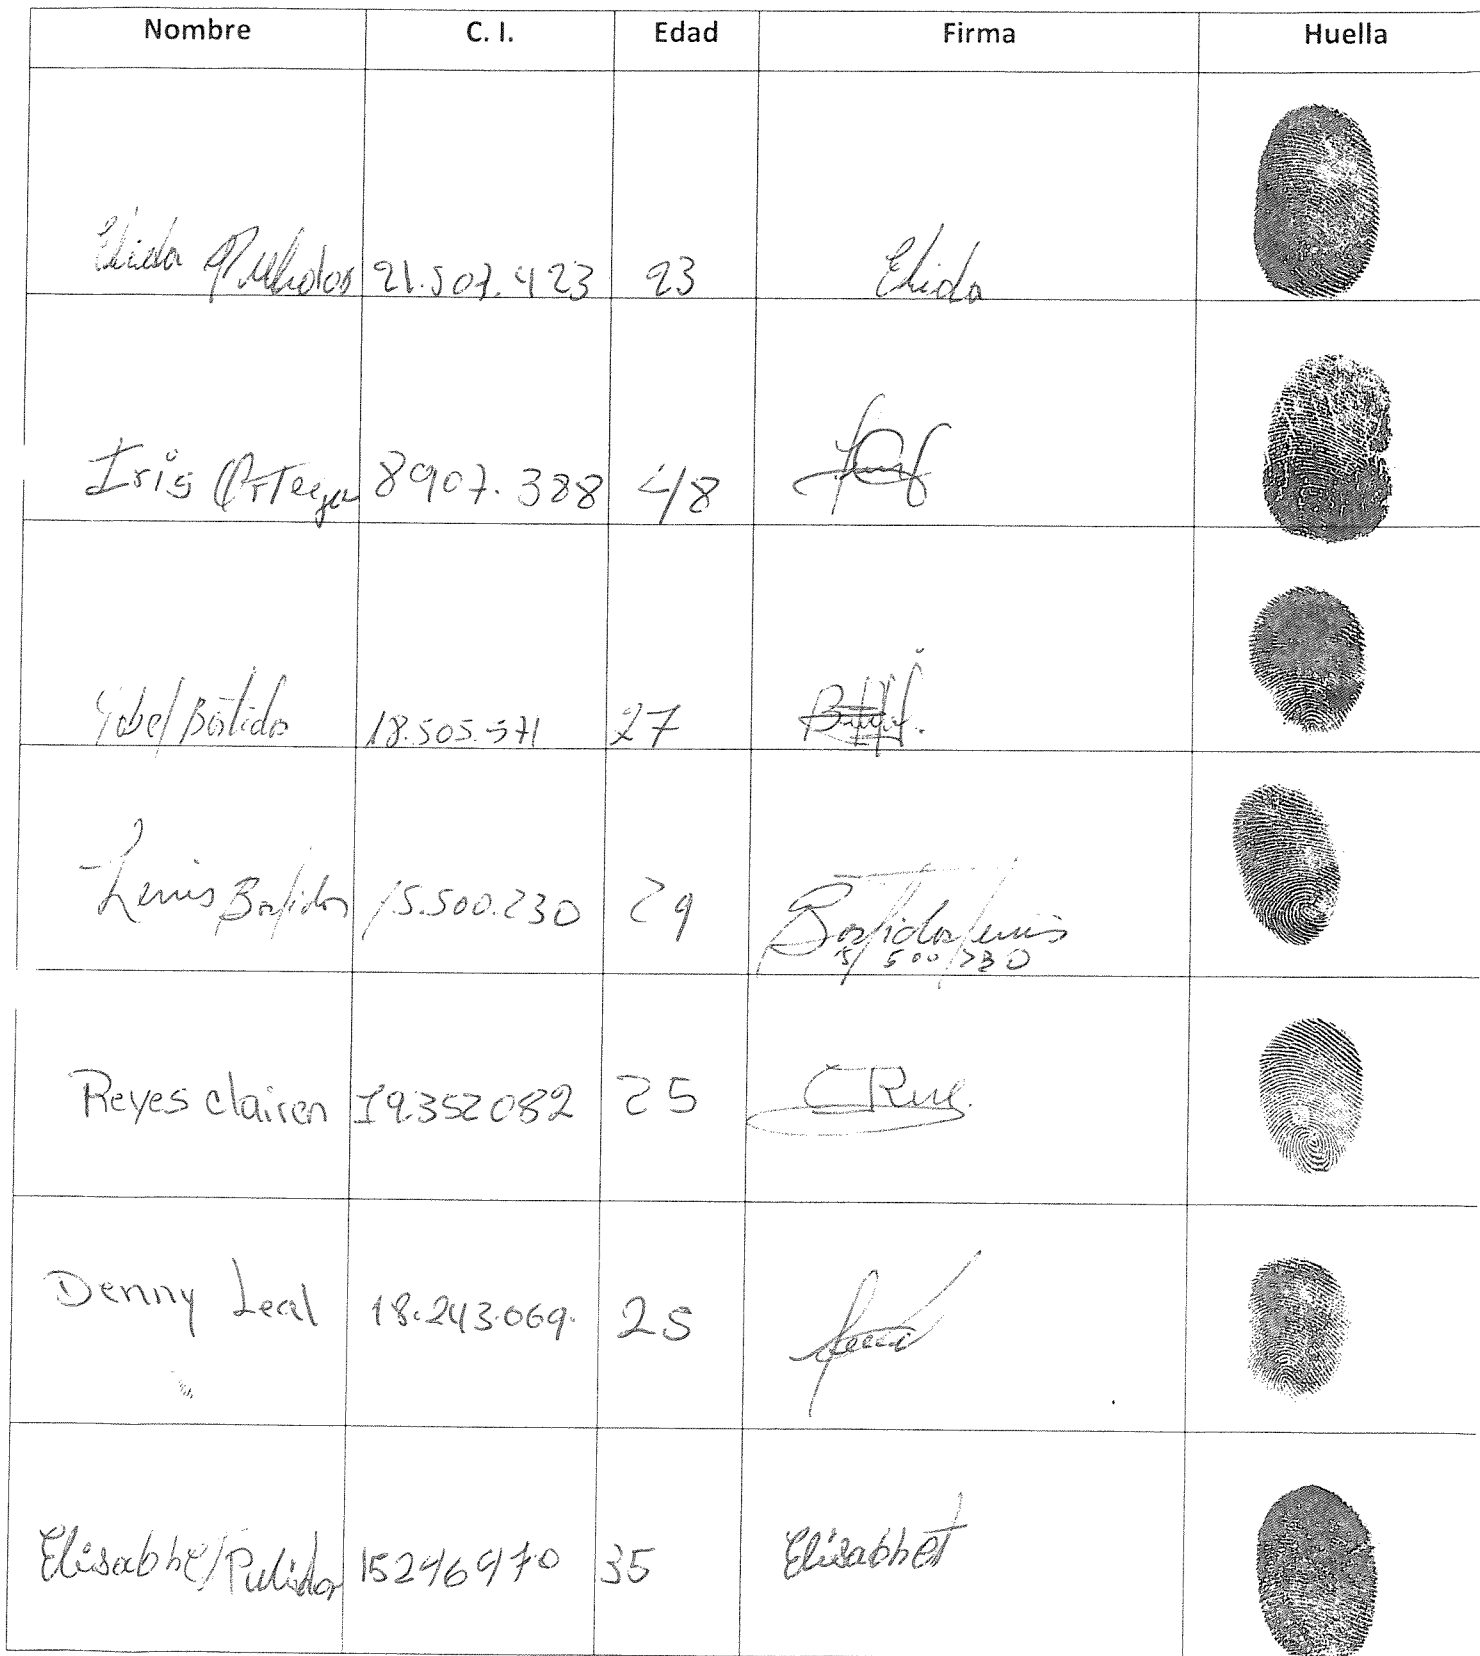 Nombre C. I. Edad Firma Huella
Elida 21.507.423 23 Elida
Iris Ortega 8907.388 48
Bastidas 18.505.571 27
Lenis Bastidas 15.500.230 29 Bastidas Lenis
15 500 230
Reyes clairen 19352082 25 CReye.
Denny Leal 18.243.069. 25
Elisabhet Pulidor 15296970 35 Elisabhet